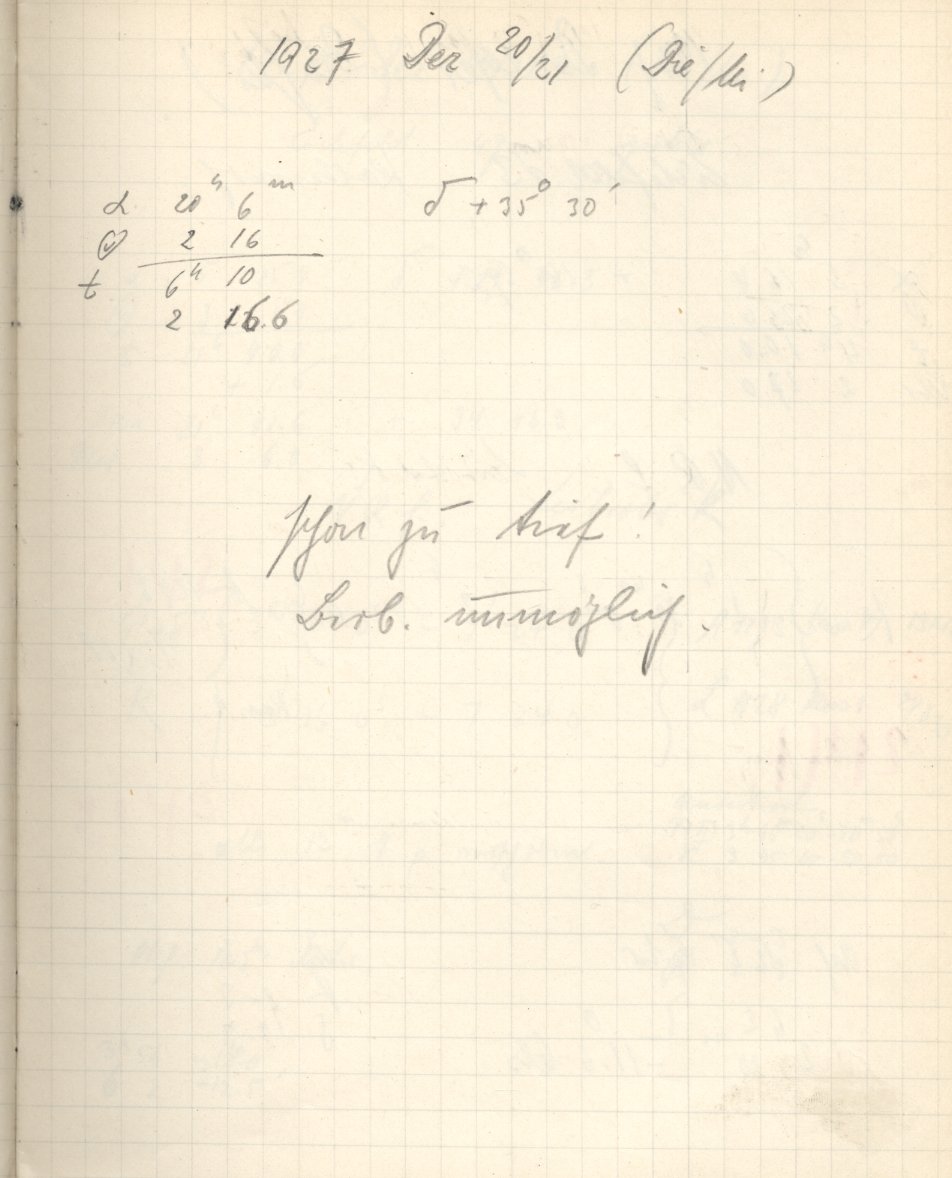 1927 Dez 20/21 (Die/Mi)
α 20h 6m δ +35° 30'
2 16
t 6h 10
2 16.6
schon zu tief!
Beob. unmöglich.